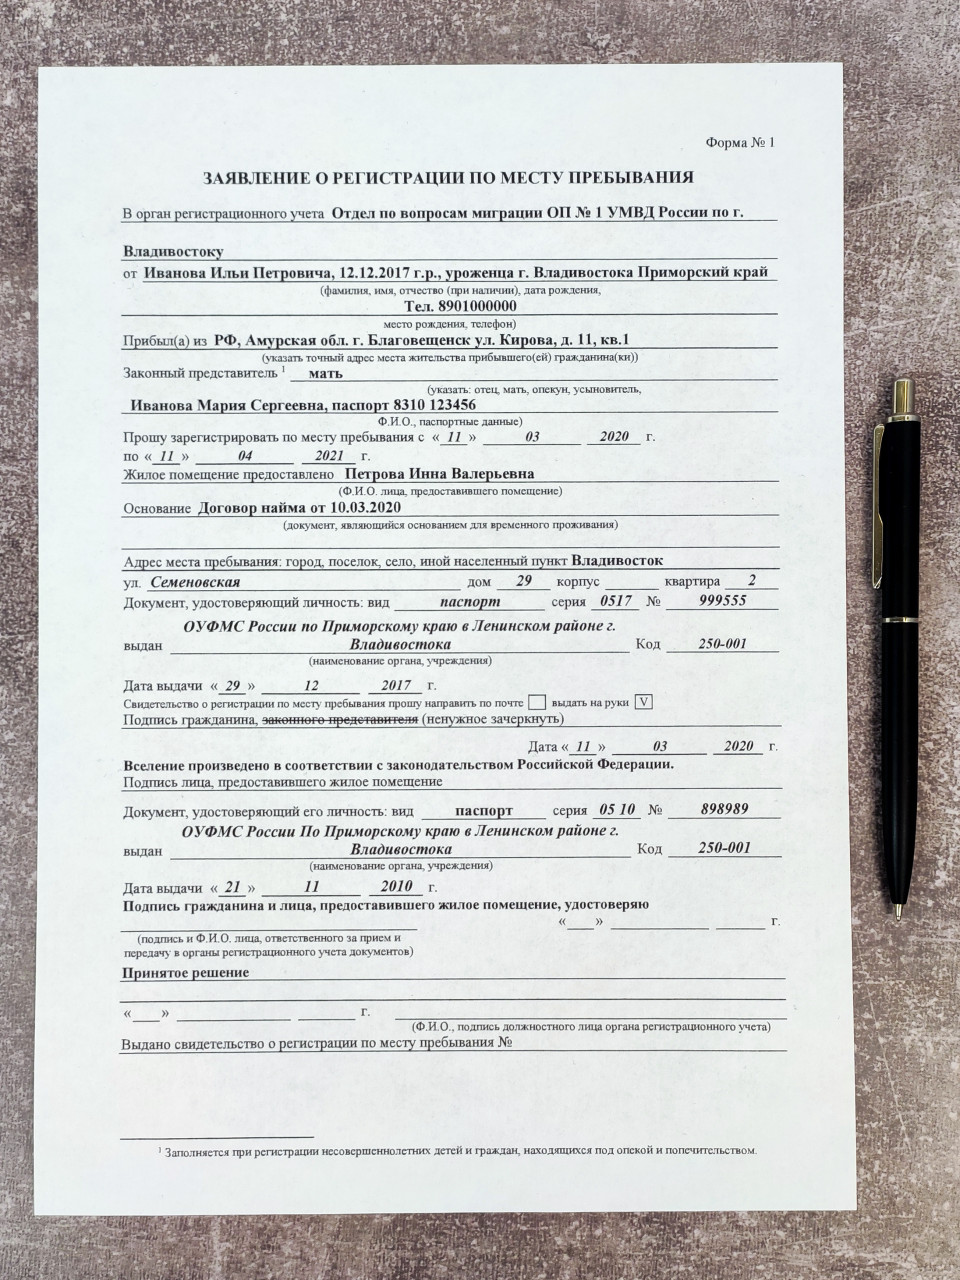 Форма № 1
ЗАЯВЛЕНИЕ О РЕГИСТРАЦИИ ПО МЕСТУ ПРЕБЫВАНИЯ
В орган регистрационного учета Отдел по вопросам миграции ОП № 1 УМВД России по г.
Владивостоку
от Иванова Ильи Петровича, 12.12.2017 г.р., уроженца г. Владивостока Приморский край
(фамилия, имя, отчество (при наличии), дата рождения,
Тел. 8901000000
место рождения, телефон)
Прибыл(а) из РФ, Амурская обл. г. Благовещенск ул. Кирова, д. 11, кв.1
(указать точный адрес места жительства прибывшего(ей) гражданина(ки))
Законный представитель 1 мать
(указать: отец, мать, опекун, усыновитель,
Иванова Мария Сергеевна, паспорт 8310 123456
Ф.И.О., паспортные данные)
Прошу зарегистрировать по месту пребывания с « 11 » 03 2020 г.
по « 11 » 04 2021 г.
Жилое помещение предоставлено Петрова Инна Валерьевна
(Ф.И.О. лица, предоставившего помещение)
Основание Договор найма от 10.03.2020
(документ, являющийся основанием для временного проживания)
Адрес места пребывания: город, поселок, село, иной населенный пункт Владивосток
ул. Семеновская дом 29 корпус квартира 2
Документ, удостоверяющий личность: вид паспорт серия 0517 № 999555
ОУФМС России по Приморскому краю в Ленинском районе г.
выдан Владивостока Код 250-001
(наименование органа, учреждения)
Дата выдачи « 29 » 12 2017 г.
Свидетельство о регистрации по месту пребывания прошу направить по почте выдать на руки V
Подпись гражданина, законного представителя (ненужное зачеркнуть)
Дата « 11 » 03 2020 г.
Вселение произведено в соответствии с законодательством Российской Федерации.
Подпись лица, предоставившего жилое помещение
Документ, удостоверяющий его личность: вид паспорт серия 05 10 № 898989
ОУФМС России По Приморскому краю в Ленинском районе г.
выдан Владивостока Код 250-001
(наименование органа, учреждения)
Дата выдачи « 21 » 11 2010 г.
Подпись гражданина и лица, предоставившего жилое помещение, удостоверяю
« » г.
(подпись и Ф.И.О. лица, ответственного за прием и
передачу в органы регистрационного учета документов)
Принятое решение
« » г.
(Ф.И.О., подпись должностного лица органа регистрационного учета)
Выдано свидетельство о регистрации по месту пребывания №
1 Заполняется при регистрации несовершеннолетних детей и граждан, находящихся под опекой и попечительством.